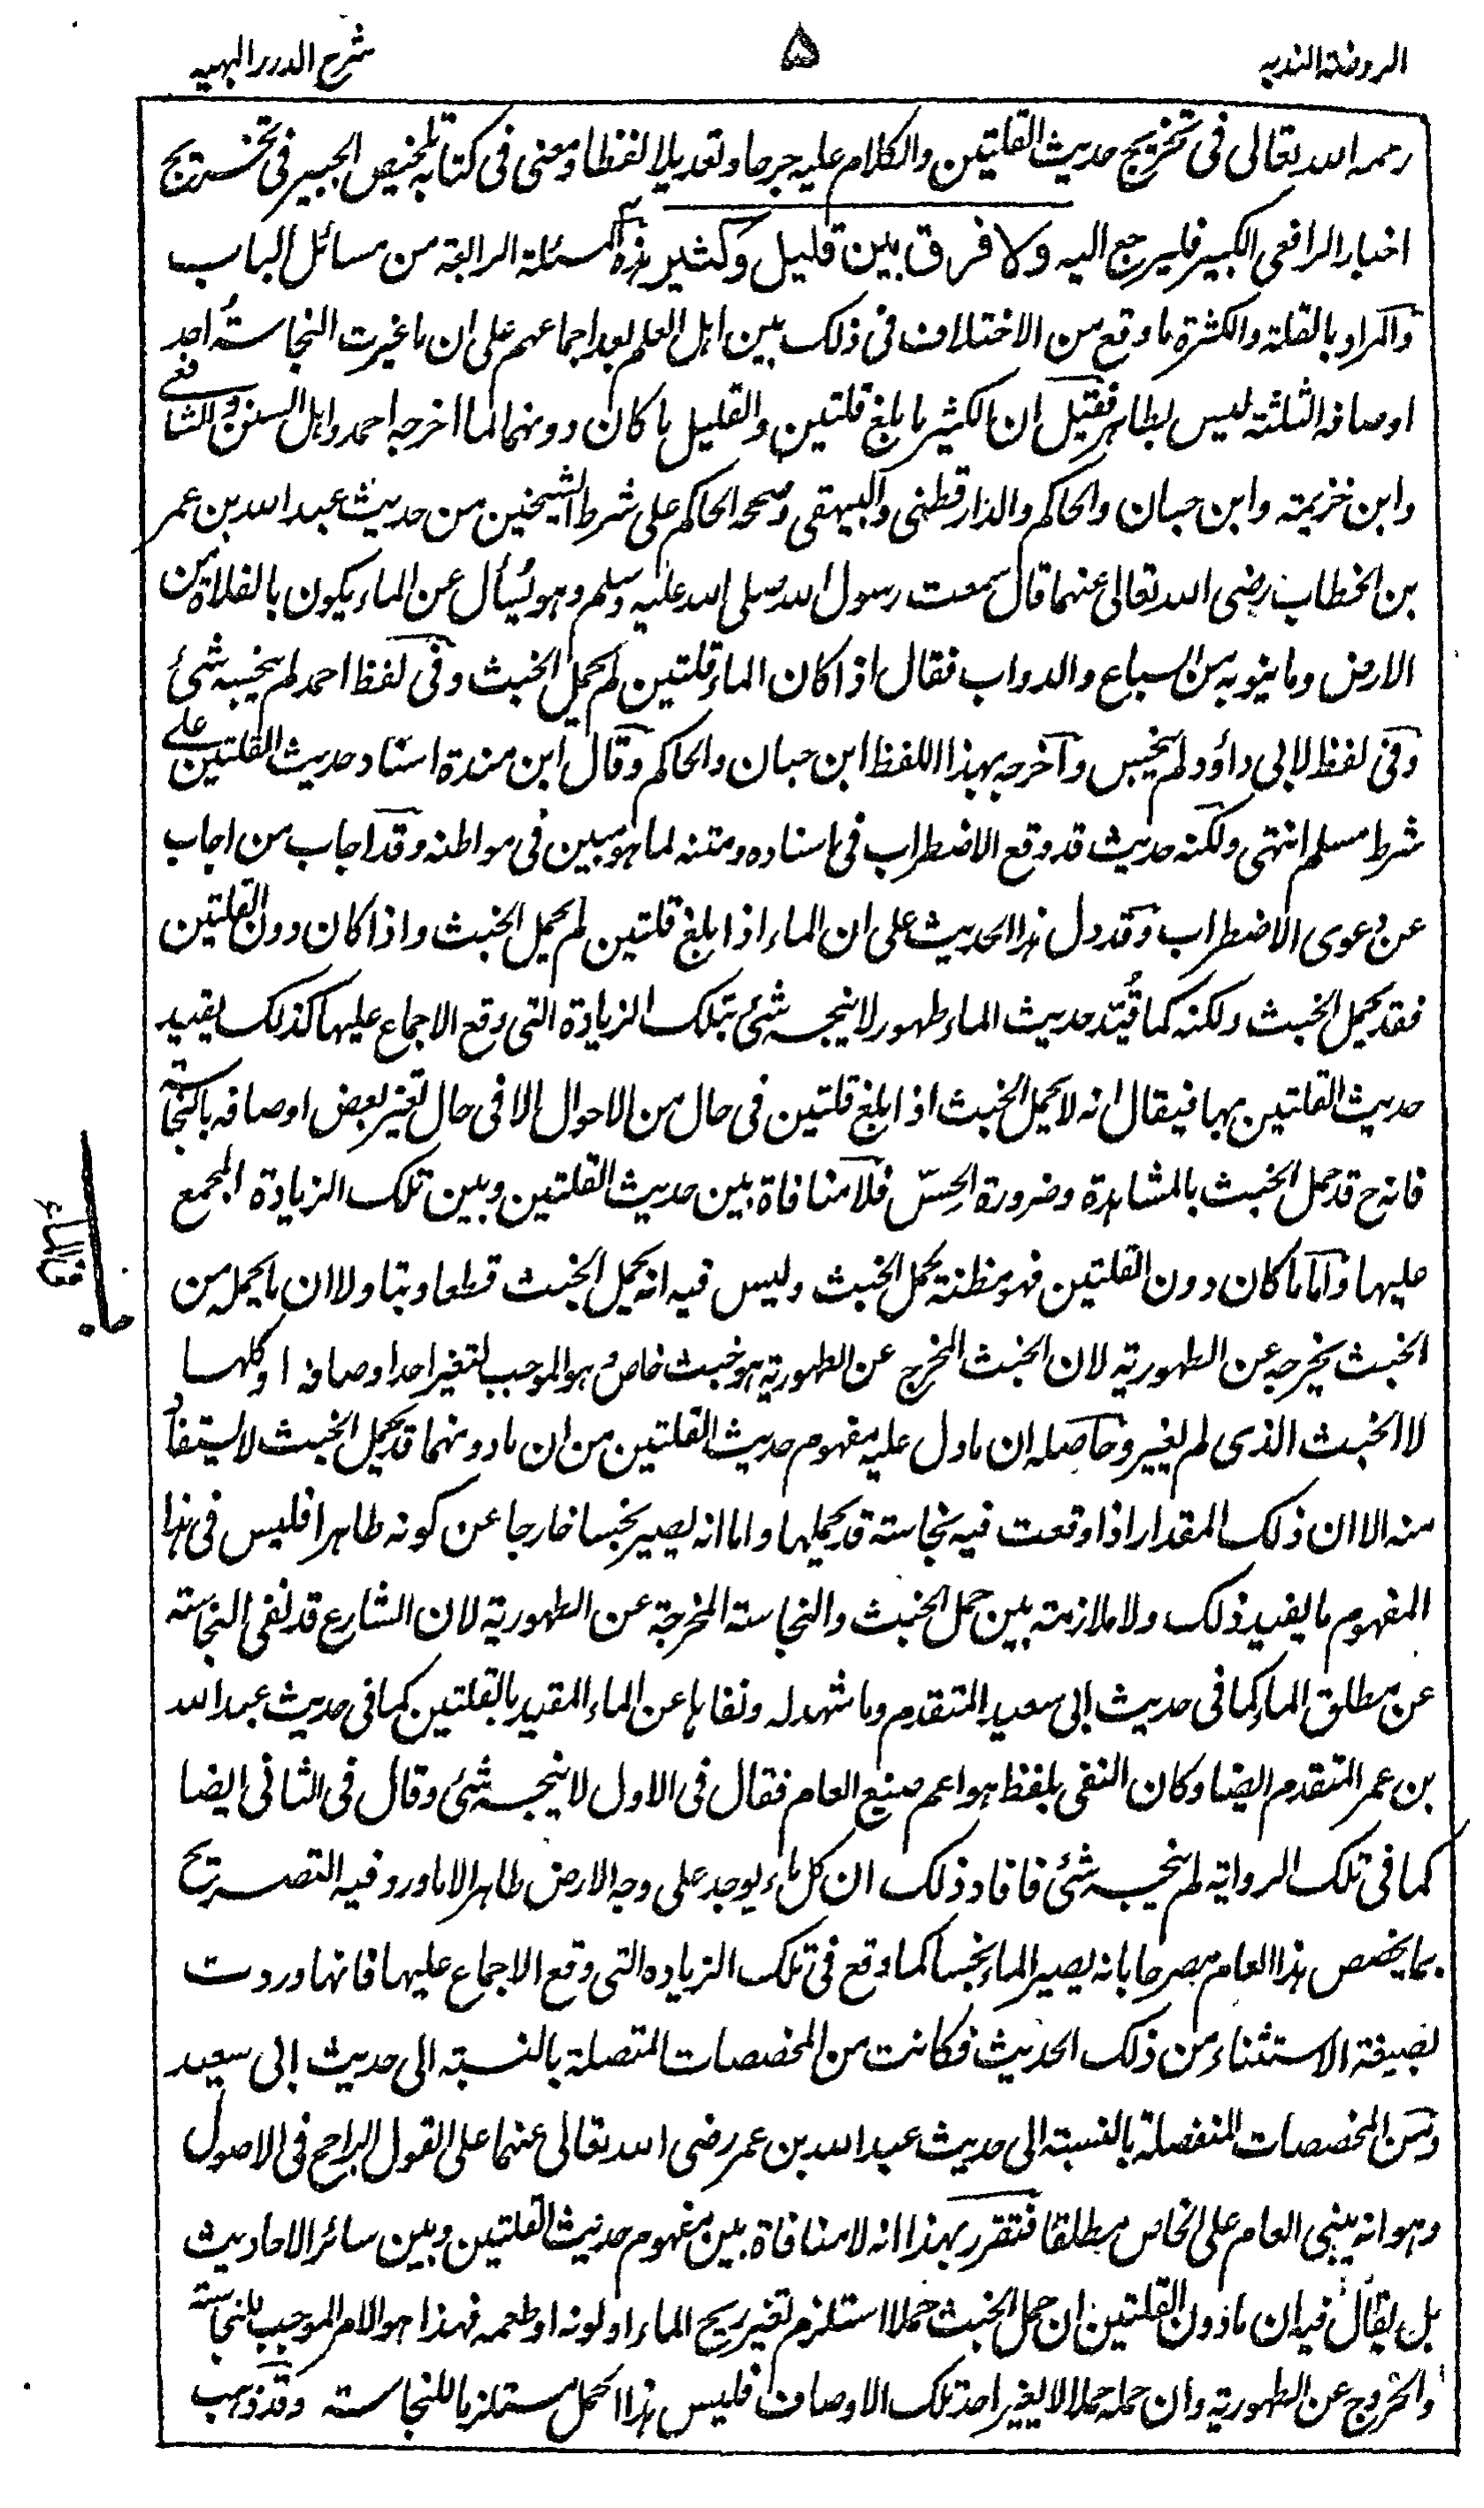 الروضة الندیه
۵
شرح الدرر البهیه
رحمه الله تعالى فى تخريج حديث القلتين والكلام عليه جرحا وتعديلا لفظا ومعنى فى كتابه تلخيص الحبير فى تخريج
اخبار الرافعى الكبير فليرجع اليه ولا فرق بين قليل وكثير هذه المسئلة الرابعة من مسائل الباب
والمراد بالقلة والكثرة ما وقع من الاختلاف فى ذلك بين اهل العلم بعد اجماعهم على ان ما غيرت النجاسة احد
اوصافه الثلثة ليس بطاهر فقيل ان الكثير ما بلغ قلتين والقليل ما كان دونهما لما اخرجه احمد واهل السنن والشافعى
وابن خزيمة وابن حبان والحاكم والدارقطنى والبيهقى وصححه الحاكم على شرط الشيخين من حديث عبد الله بن عمر
بن الخطاب رضى الله تعالى عنهما قال سمعت رسول الله صلى الله عليه وسلم وهو يُسأل عن الماء يكون بالفلاة من
الارض وما ينوبه من السباع والدواب فقال اذا كان الماء قلتين لم يحمل الخبث وفى لفظ احمد لم ينجسه شئ
وفى لفظ لابى داؤد لم ينجس وآخرجه بهذا اللفظ ابن حبان والحاكم وقال ابن مندة اسناد حديث القلتين على
شرط مسلم انتهى ولكنه حديث قد وقع الاضطراب فى اسناده ومتنه لما هو مبين فى مواطنه وقد اجاب من اجاب
عن دعوى الاضطراب وقد دل هذا الحديث على ان الماء اذا بلغ قلتين لم يحمل الخبث واذا كان دون القلتين
فقد يحمل الخبث ولكنه كما قُيّد حديث الماء طهور لا ينجسه شئ بتلك الزيادة التى وقع الاجماع عليها كذلك يقيد
حديث القلتين بها فيقال انه لا يحمل الخبث اذا بلغ قلتين فى حال من الاحوال الا فى حال تغير بعض اوصافه بالنجاسة
فانه ح قد حمل الخبث بالمشاهدة وضرورة الحِسّ فلا منافاة بين حديث القلتين وبين تلك الزيادة المجمع
عليها وآما ما كان دون القلتين فهو مظنة لحمل الخبث وليس فيه انه يحمل الخبث قطعا وبتا ولا ان ما يحمله من
الخبث يخرجه عن الطهورية لان الخبث المخرج عن الطهورية هو خبث خاص وهو الموجب لتغير احد اوصافه او كلها
لا الخبث الذى لم يغير وحاصله ان ما دل عليه مفهوم حديث القلتين من ان ما دونهما قد يحمل الخبث لا يستفاد
منه الا ان ذلك المقدار اذا وقعت فيه نجاسة قد يحملها واما انه يصير نجسا خارجا عن كونه طاهرا فليس فى هذا
المفهوم ما يفيد ذلك ولا ملازمة بين حمل الخبث والنجاسة المخرجة عن الطهورية لان الشارع قد نفى النجاسة
عن مطلق الماء كما فى حديث ابى سعيد المتقدم وما شهد له ونفاها عن الماء المقيد بالقلتين كما فى حديث عبد الله
بن عمر المتقدم ايضا وكان النفى بلفظ هو اعم صيغ العام فقال فى الاول لا ينجسه شئ وقال فى الثانى ايضا
كما فى تلك الرواية لم ينجسه شئ فافاد ذلك ان كل ماء يوجد على وجه الارض طاهر الا ما ورد فيه التصريح
بما يخصص هذا العام مصرحا بانه يصير الماء نجسا كما وقع فى تلك الزيادة التى وقع الاجماع عليها فانها وردت
بصيغة الاستثناء من ذلك الحديث فكانت من المخصصات المتصلة بالنسبة الى حديث ابى سعيد
ومن المخصصات المنفصلة بالنسبة الى حديث عبد الله بن عمر رضى الله تعالى عنهما على القول الراجح فى الاصول
وهو انه يبنى العام على الخاص مطلقا فتقرر بهذا انه لا منافاة بين مفهوم حديث القلتين وبين سائر الاحاديث
بل يقال فيه ان ما دون القلتين ان حمل الخبث حملا استلزم تغير ريح الماء او لونه او طعمه فهذا هو الامر الموجب للنجاسة
والخروج عن الطهورية وان حمله حملا لا يغير احد تلك الاوصاف فليس هذا الحمل مستلزما للنجاسة وقد ذهب